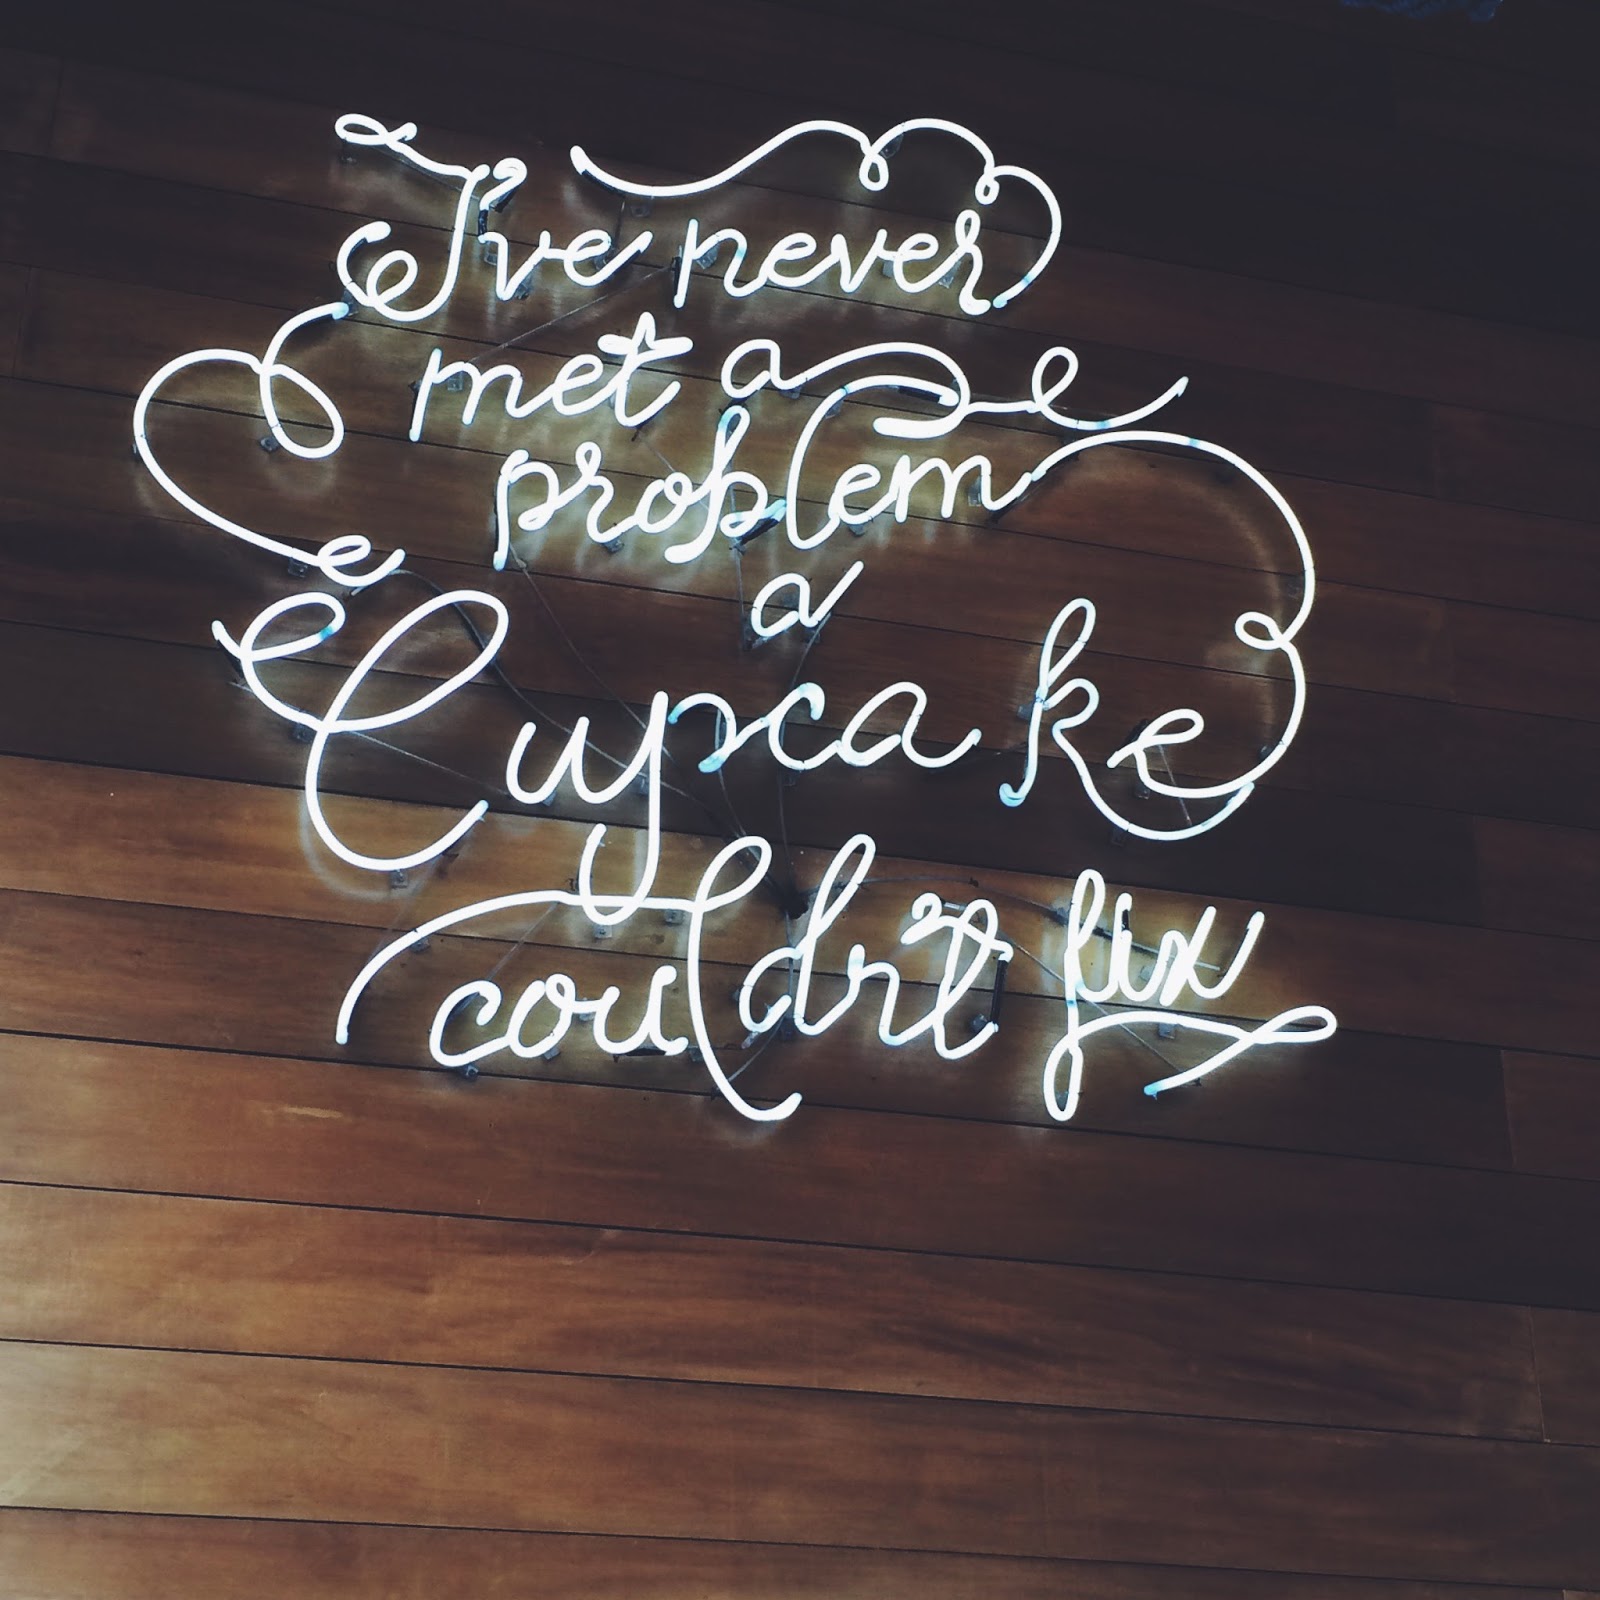 I've never
met a
problem
a
Cupcake
couldn't fix